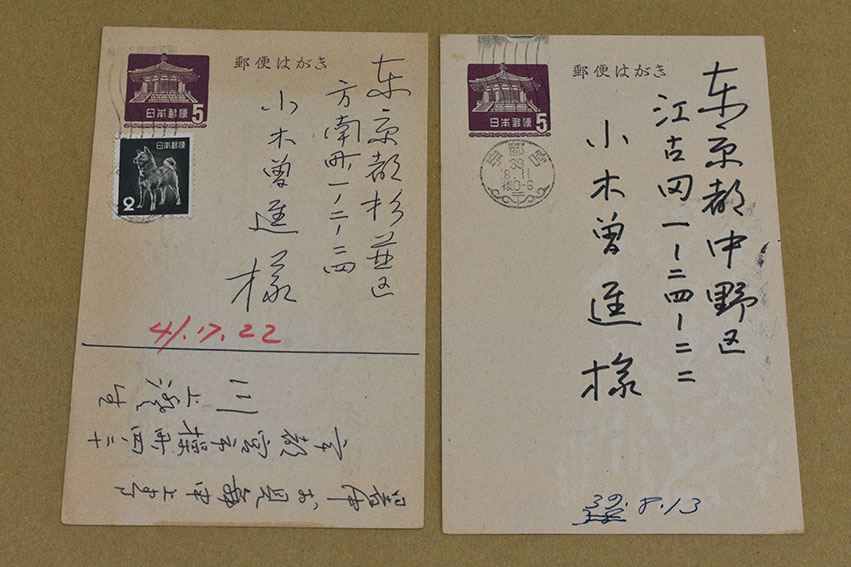 郵便はがき
日本郵便
5
日本郵便
2
東京都杉並区
方南町一ノ二ノ三四
小木曽進様
41.7.22
川上澄生
郵便はがき
日本郵便
5
39
8.11
後0-6
東京都中野区
江古田一ノ二四ノ二二
小木曽進様
39.8.13